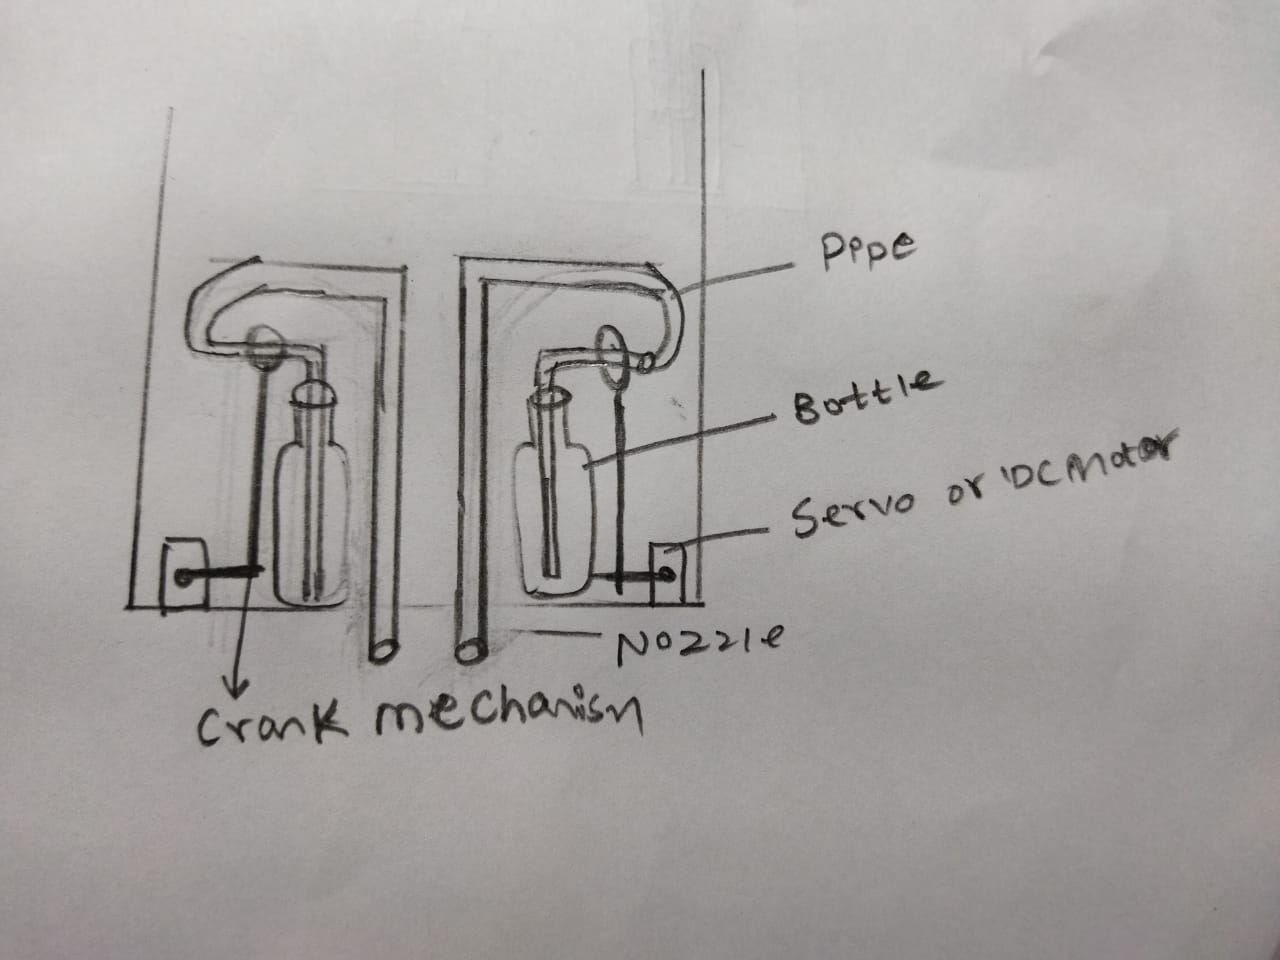 Pipe
Bottle
Servo or DC Motor
Nozzle
Crank mechanism